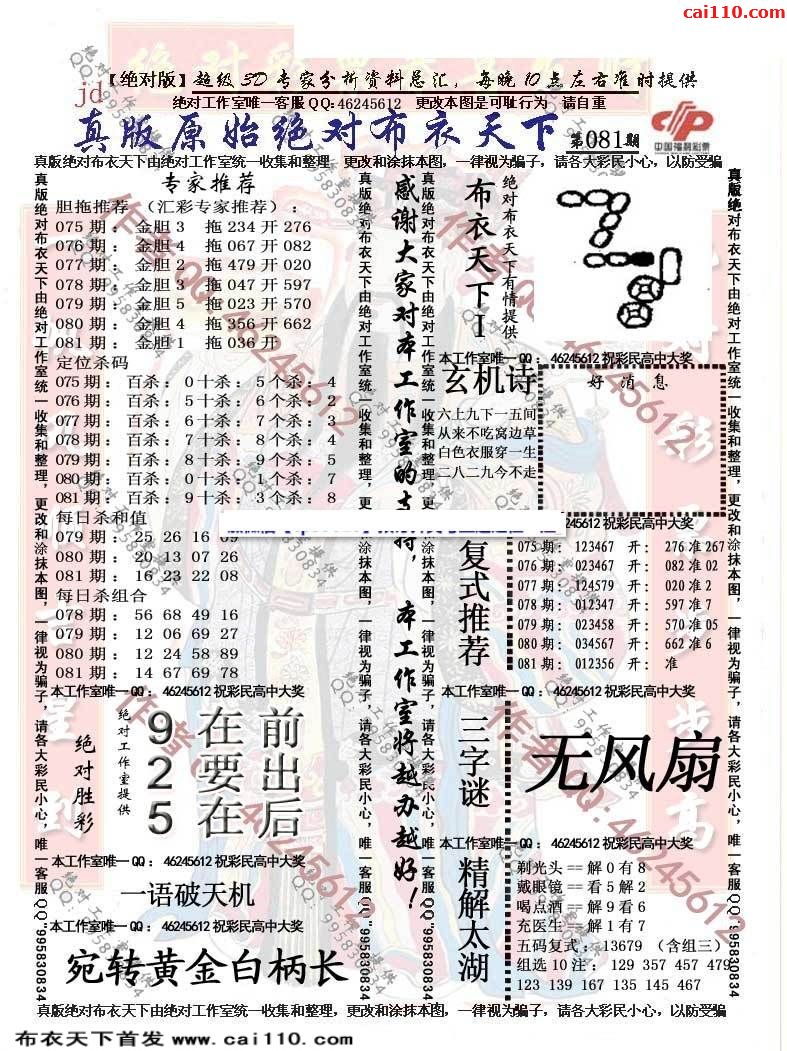 cai110.com
【绝对版】超级3D专家分析资料总汇，每晚10点左右准时提供
jd
绝对工作室唯一客服QQ:46245612 更改本图是可耻行为 请自重
真版原始绝对布衣天下 第081期
中国福利彩票
真版绝对布衣天下由绝对工作室统一收集和整理，更改和涂抹本图，一律视为骗子，请各大彩民小心，以防受骗
真版绝对布衣天下由绝对工作室统一收集和整理，更改和涂抹本图，一律视为骗子，请各大彩民小心，唯一客服QQ:995830834
专家推荐
胆拖推荐 （汇彩专家推荐）：
075期：金胆3 拖234开276
076期：金胆4 拖067开082
077期：金胆2 拖479开020
078期：金胆3 拖047开597
079期：金胆5 拖023开570
080期：金胆4 拖356开662
081期：金胆1 拖036开
定位杀码
075期：百杀：0十杀：5个杀：4
076期：百杀：5十杀：6个杀：2
077期：百杀：6十杀：7个杀：3
078期：百杀：7十杀：8个杀：4
079期：百杀：8十杀：9个杀：5
080期：百杀：0十杀：1个杀：7
081期：百杀：9十杀：3个杀：8
每日杀和值
079期：25 26 16 09
080期：20 13 07 26
081期：16 23 22 08
每日杀组合
078期：56 68 49 16
079期：12 06 69 27
080期：12 24 58 89
081期：14 67 69 78
本工作室唯一QQ：46245612祝彩民高中大奖
绝对胜彩
绝对工作室提供
9在前
2要出
5在后
本工作室唯一QQ：46245612祝彩民高中大奖
一语破天机
本工作室唯一QQ：46245612祝彩民高中大奖
宛转黄金白柄长
真版绝对布衣天下由绝对工作室统一收集和整理，更改和涂抹本图，一律视为骗子，请各大彩民小心，唯一客服QQ"995830834
感谢大家对本工作室的支持，本工作室将越办越好！
真版绝对布衣天下由绝对工作室统一收集和整理，更改和涂抹本图，一律视为骗子，请各大彩民小心，唯一客服QQ"995830834
布衣天下I
绝对布衣天下有情提供
本工作室唯一QQ：46245612祝彩民高中大奖
玄机诗
六上九下一五间
从来不吃窝边草
白色衣服穿一生
二八二九今不走
好消息
46245612祝彩民高中大奖
复式推荐
075期：123467 开：276准267
076期：023467 开：082准02
077期：124579 开：020准2
078期：012347 开：597准7
079期：023458 开：570准05
080期：034567 开：662准6
081期：012356 开：准
本工作室唯一QQ：46245612祝彩民高中大奖
三字谜
无风扇
本工作室唯一QQ：46245612祝彩民高中大奖
精解太湖
剃光头==解0有8
戴眼镜==看5解2
喝点酒==解9看6
充医生==解1有7
五码复式：13679（含组三）
组选10注：129 357 457 479
123 139 167 135 145 467
真版绝对布衣天下由绝对工作室统一收集和整理，更改和涂抹本图，一律视为骗子，请各大彩民小心，唯一客服QQ"995830834
真版绝对布衣天下由绝对工作室统一收集和整理，更改和涂抹本图，一律视为骗子，请各大彩民小心，以防受骗
布衣天下首发 www.cai110.com